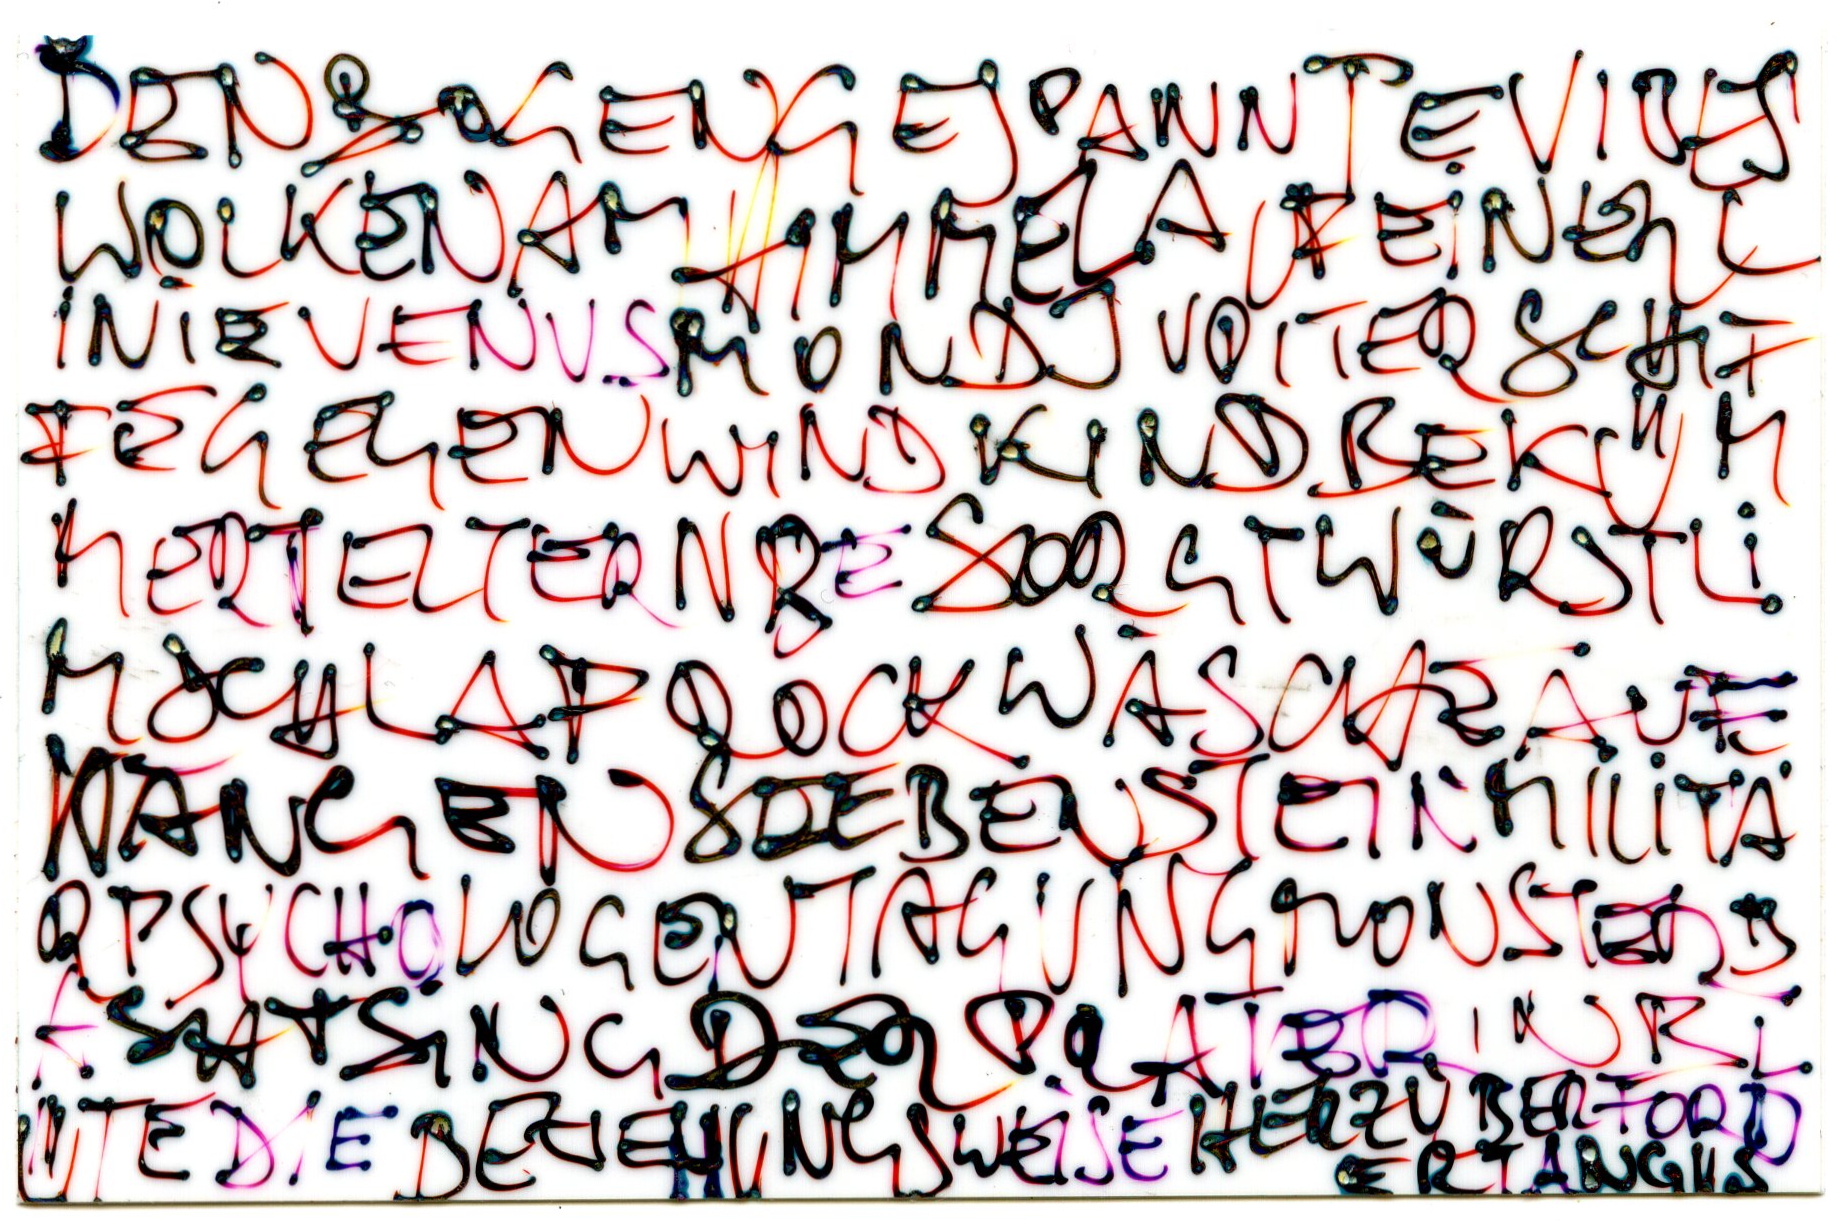 DEN BOGEN GESPANNT EVIUS
WOLKEN AM HIMMEL AUF EINER L
INIE VENUS MOND JUPITER SCHIF
FE GEGENWIND KIND BEKÜM
MERT ELTERN BESORGT WÜRSTLI
M SCHLAPROCK WÄSCHE ÄUFE
WANGEN SIEBENSTEIN MILITÄ
RPSYCHOLOGENTAGUNG MONSTER B
SATSUNG DER PRATER IN BL
ÜTE DIE BEZIEHUNGSWEISE HERZ ÜBERFORD
ERT ANGUS